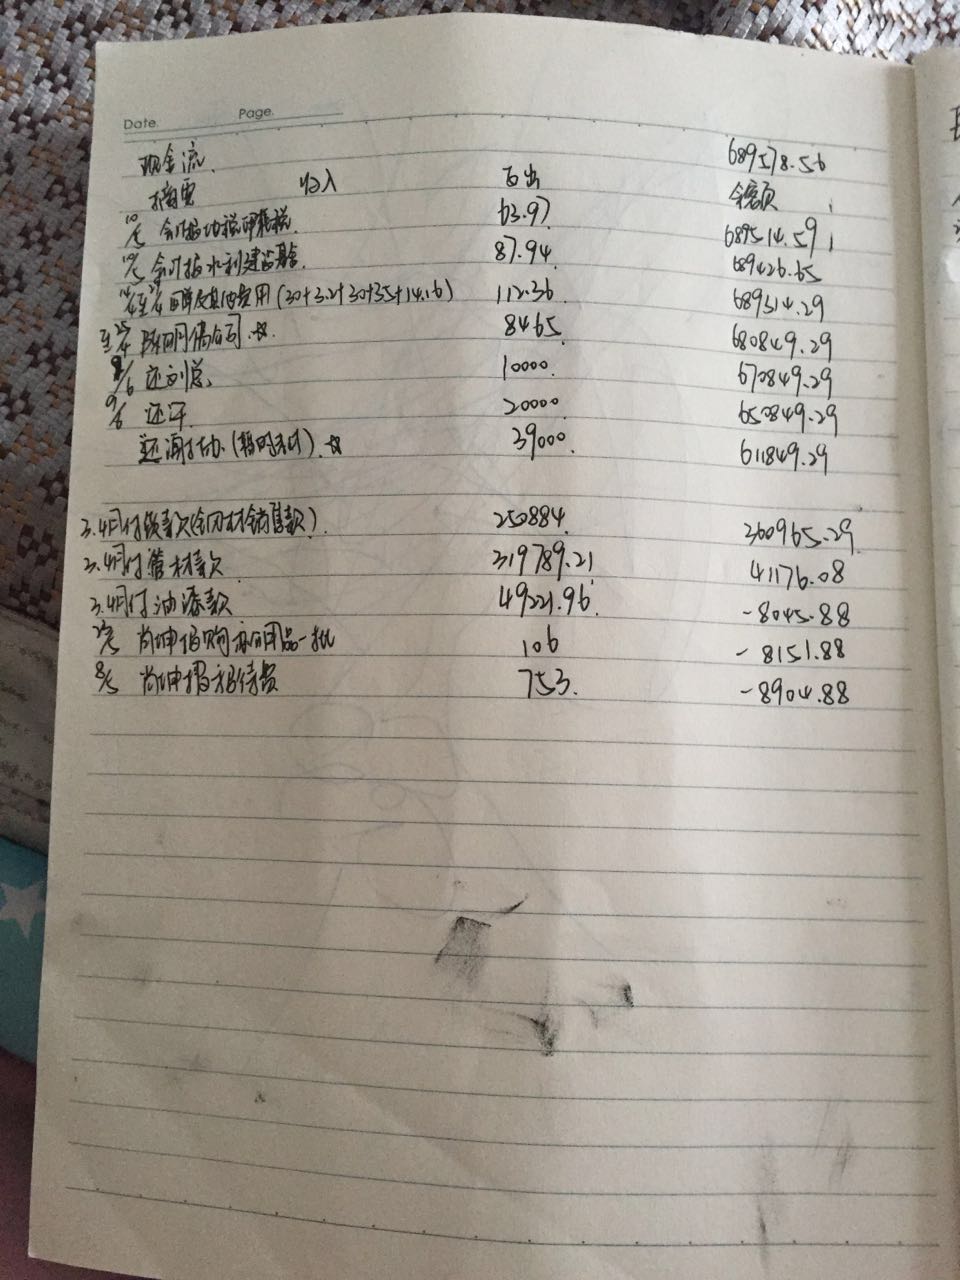 Date. Page.
现金流. 689578.56
摘要 收入 支出 余额
10/5 会计报地税印花税 63.97 689514.59
10/5 会计报水利建设基金. 87.94. 689426.65
及其他费用(30+3.2+30+35+14.16) 112.36 689314.29
8465. 680849.29
9/6 还刘总. 10000. 670849.29
9/6 还 20000. 650849.29
还 (暂时不付). ☆ 39000. 611849.29
3.4月付铁款(含钢材销售款). 250884. 360965.29
3.4月付管材款 319789.21 41176.08
3.4月付油漆款 49221.96. -8045.88
肖坤报购办公用品一批 106 -8151.88
8/5 肖坤报招待费 753. -8904.88